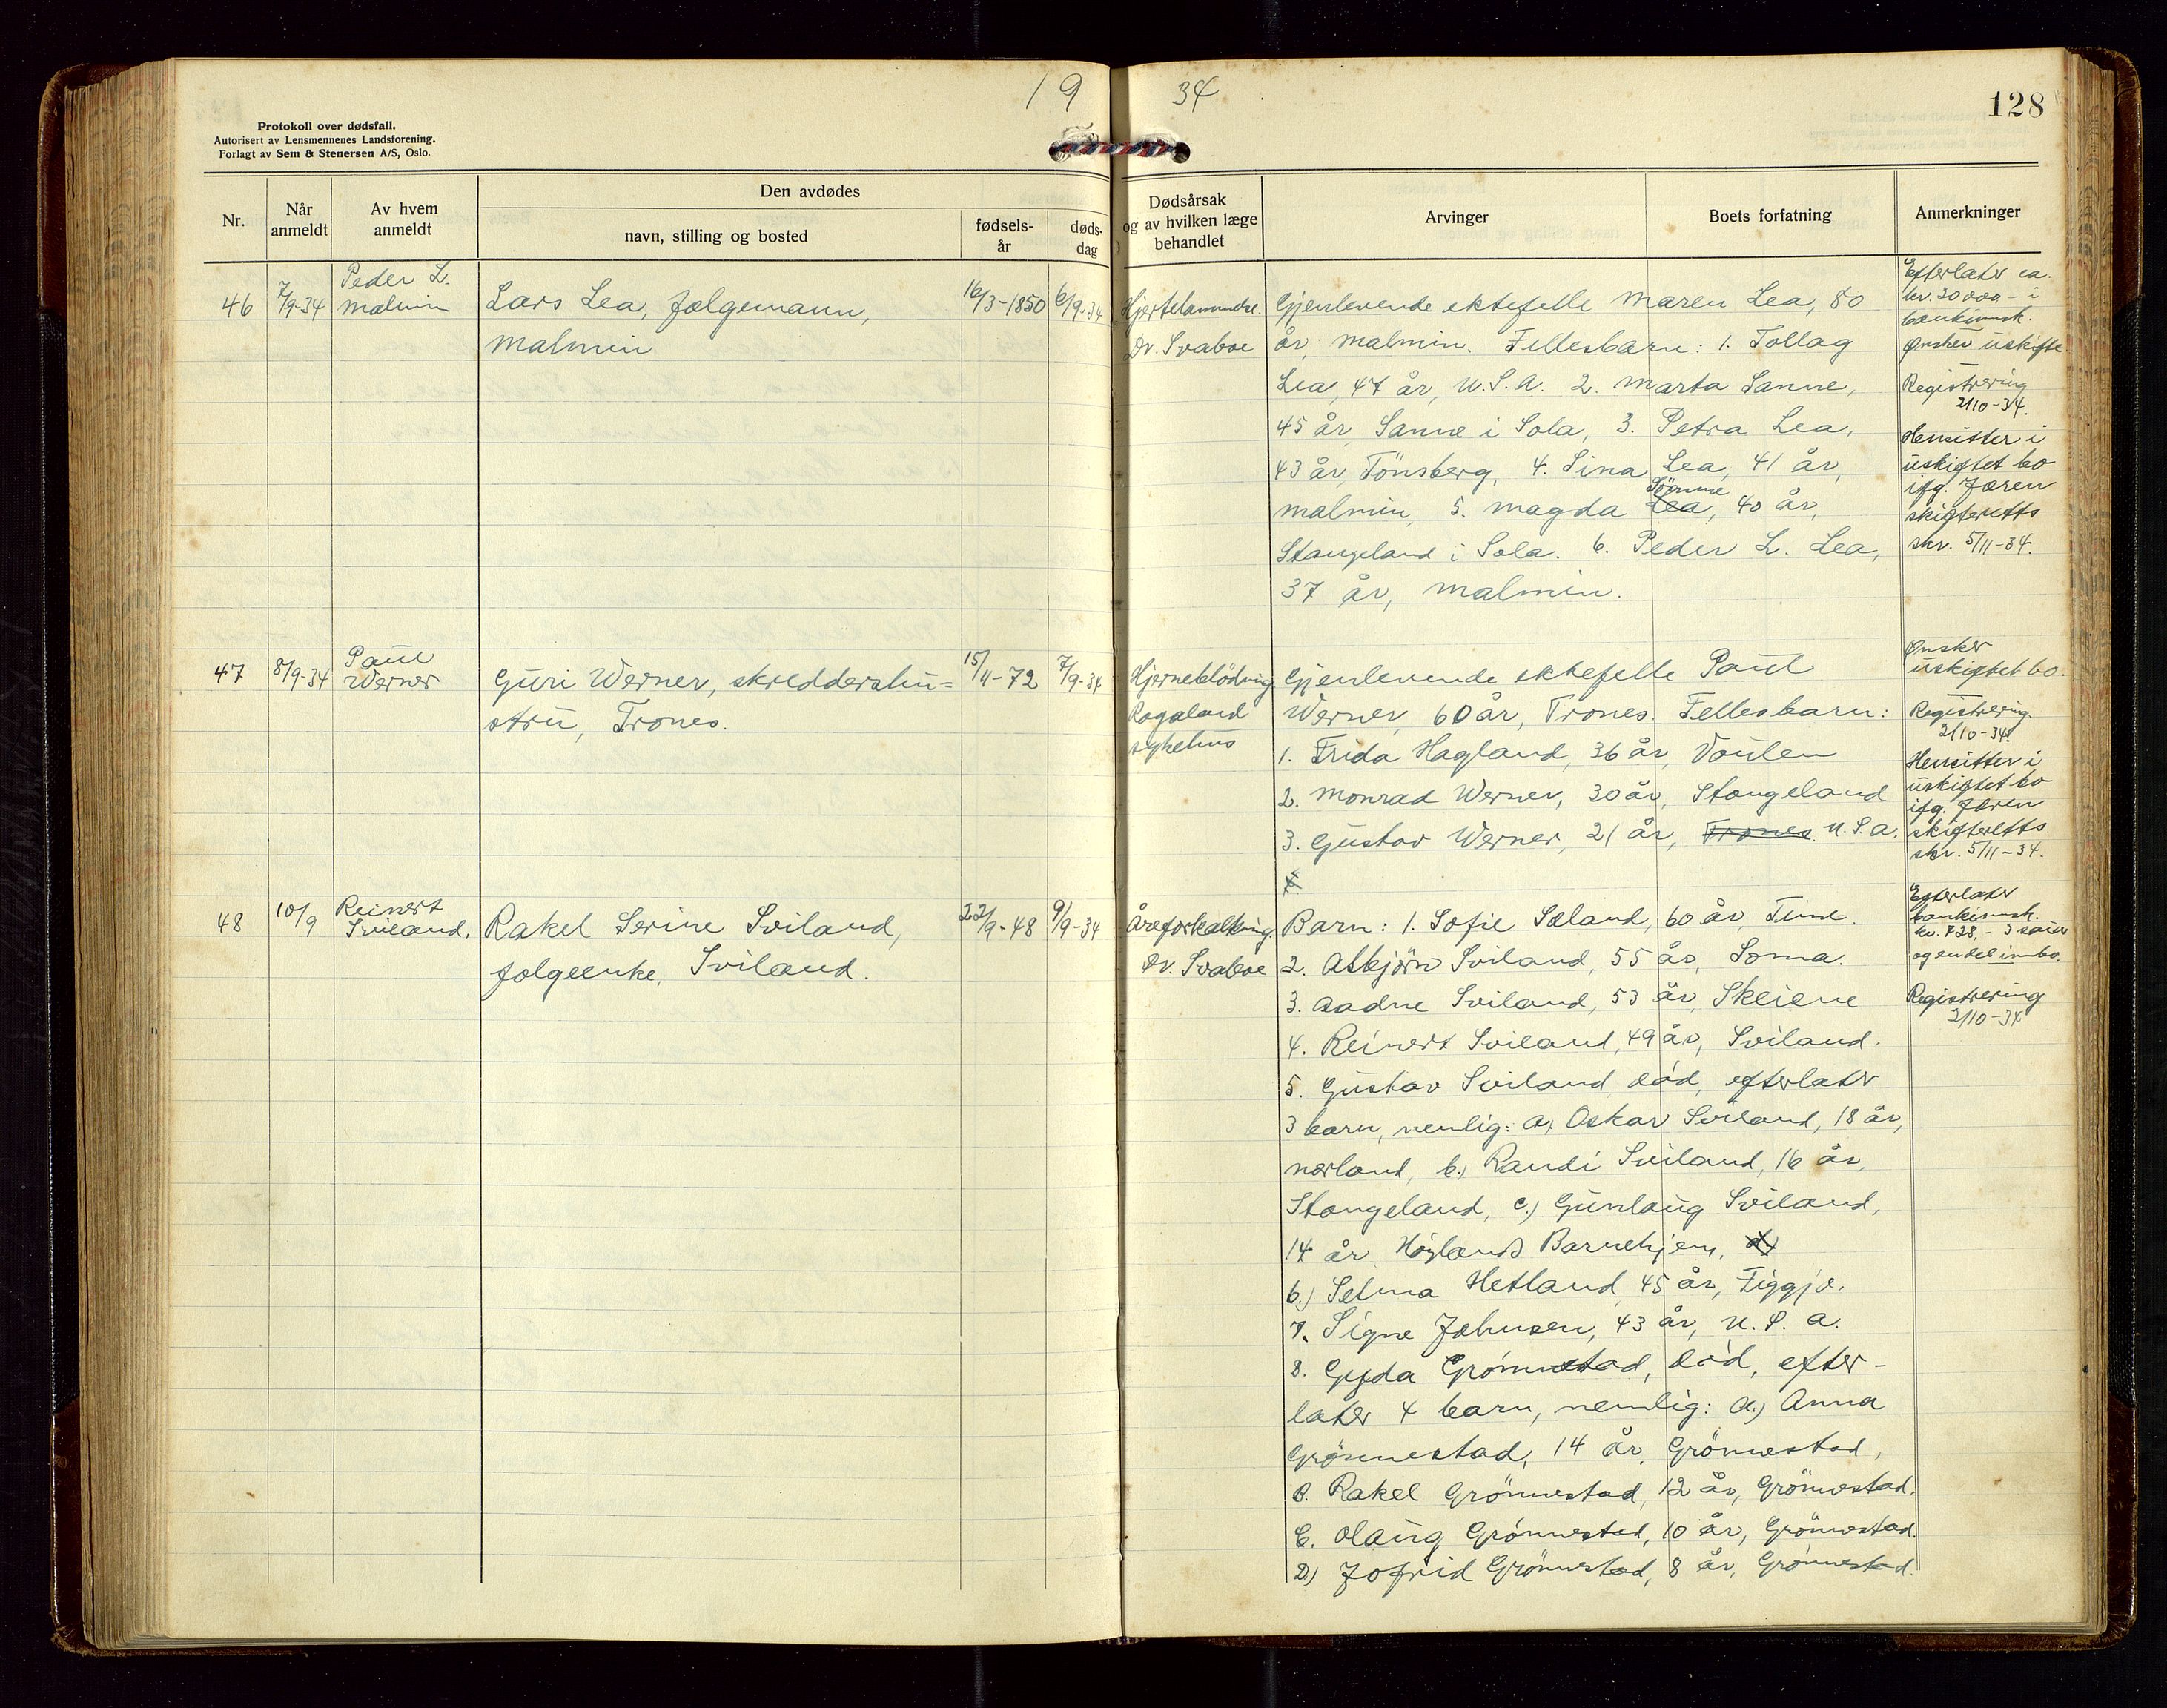 1934
128
Protokoll over dødsfall.
Autorisert av Lensmennenes Landsforening.
Forlagt av Sem & Stenersen A/S, Oslo.
Nr.
Når anmeldt
Av hvem anmeldt
Den avdødes
navn, stilling og bosted
fødsels-år
døds-dag
Dødsårsak og av hvilken læge behandlet
Arvinger
Boets forfatning
Anmerkninger
46
7/9-34
Peder L.
Malmin
Lars Lea, følgemann,
Malmin
16/3-1850
6/9-34
Hjertelammelse.
Dr. Svaboe
Gjenlevende ektefelle Maren Lea, 80
år, Malmin. Fellesbarn: 1. Tollag
Lea, 47 år, U.S.A. 2. Marta Sanne,
45 år, Sanne i Sola, 3. Petra Lea,
43 år, Tönsberg, 4. Sina Lea, 41 år,
Malmin, 5. Magda Lea Sömme, 40 år,
Stangeland i Sola. 6. Peder L. Lea,
37 år, Malmin.
Efterlater ca.
kr. 20000,- i
bankinnsk.
Ønsker uskifte
Registrering
2/10-34.
Hensitter i
uskiftet bo
ifg. Jæren
skifteretts
skr. 5/11-34.
47
8/9-34
Paul
Werner
Guri Werner, skreddershu-
stru, Trones.
15/11-72
7/9-34
Hjerneblödning
Rogaland
sykehus
Gjenlevende ektefelle Paul
Werner, 60 år, Trones. Fellesbarn:
1. Frida Hagland, 36 år, Vaulen
2. Monrad Werner, 30 år, Stangeland
3. Gustav Werner, 21 år, Trones U.S.A.
4.
Ønsker
uskiftet bo.
Registrering.
2/10-34.
Hensitter i
uskiftet bo
ifg. Jæren
skifteretts
skr. 5/11-34.
48
10/9
Reinert
Sviland.
Rakel Serine Sviland,
følgeenke, Sviland.
22/9-48
9/9-34
Åreforkalkning.
Dr. Svaboe
Barn: 1. Sofie Sæland, 60 år, Time.
2. Asbjörn Sviland, 55 år, Soma.
3. Aadne Sviland, 53 år, Skeiene
4. Reinert Sviland, 49 år, Sviland.
5. Gustav Sviland, död, efterlater
3 barn, nemlig: a. Oskar Sviland, 18 år,
Nærland, b.) Randi Sviland, 16 år,
Stangeland, c.) Gunlaug Sviland,
14 år, Höylands Barnehjem, d)
6.) Selma Hetland, 45 år, Figgjo.
7. Signe Johnsen, 43 år, U.S.A.
8. Gyda Grönnestad, död, efter-
later 4 barn, nemlig: A.) Anna
Grönnestad, 14 år, Grönnestad,
B. Rakel Grönnestad, 12 år, Grönnestad.
C. Olaug Grönnestad, 10 år, Grönnestad.
D.) Jofrid Grönnestad, 8 år, Grönnestad.
Efterlater
bankinnsk.
kr. 738,- 3 sauer
og en del innbo.
Registrering
2/10-34